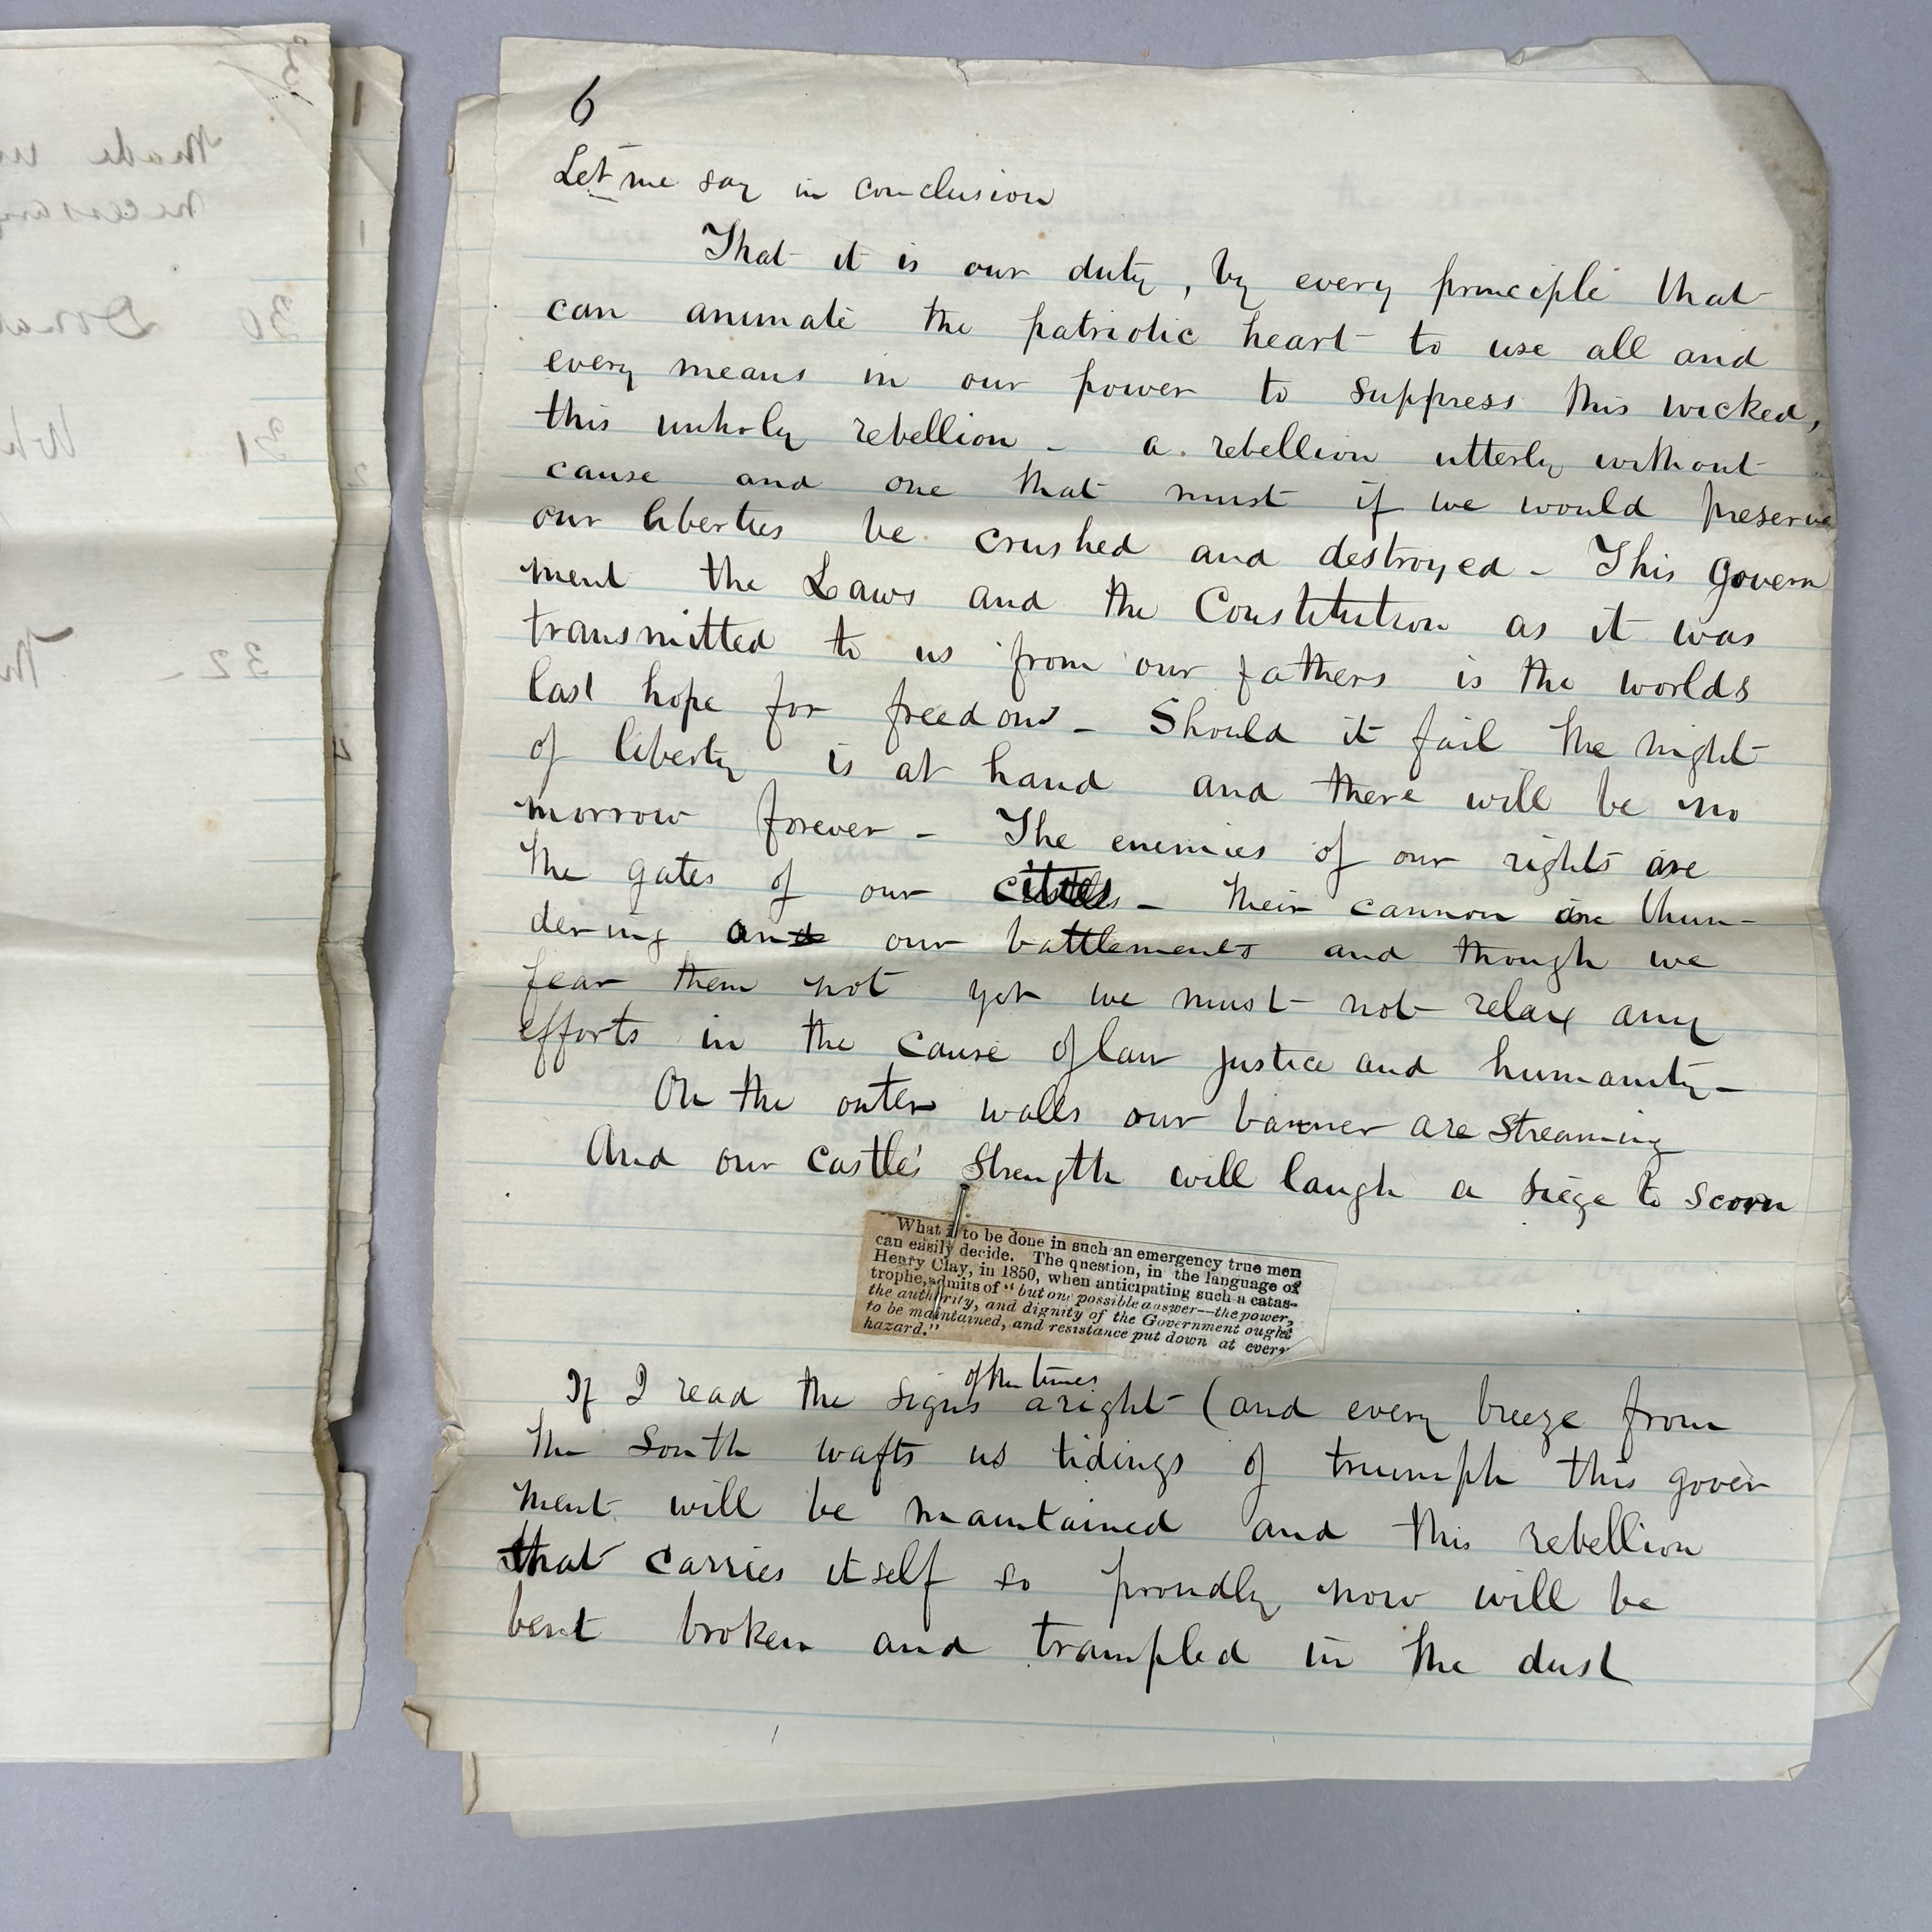 Made
30
31
Wh
32 -
6
Let me say in conclusion
That it is our duty, by every principle that
can animate the patriotic heart to use all and
every means in our power to suppress this wicked,
this unholy rebellion - a rebellion utterly without
cause and one that must if we would preserve
our liberties be crushed and destroyed - This govern
ment the Laws and the Constitution as it was
transmitted to us from our fathers is the worlds
last hope for freedom - Should it fail the night
of liberty is at hand and there will be no
morrow forever - The enemies of our rights are
the gates of our - Their cannon are thun-
dering our battlements and though we
fear them not yet we must not relax any
efforts in the cause of law justice and humanity -
On the outer walls our banner are streaming
And our castle's strength will laugh a siege to scorn
What is to be done in such an emergency true men
can easily decide. The question, in the language of
Henry Clay, in 1850, when anticipating such a catas-
trophe, admits of "but one possible answer--the power,
the authority, and dignity of the Government ought
to be maintained, and resistance put down at every
hazard."
of the times
If I read the signs aright (and every breeze from
the South wafts us tidings of triumph this gover
ment will be maintained and this rebellion
that carries itself so proudly now will be
bent broken and trampled in the dust